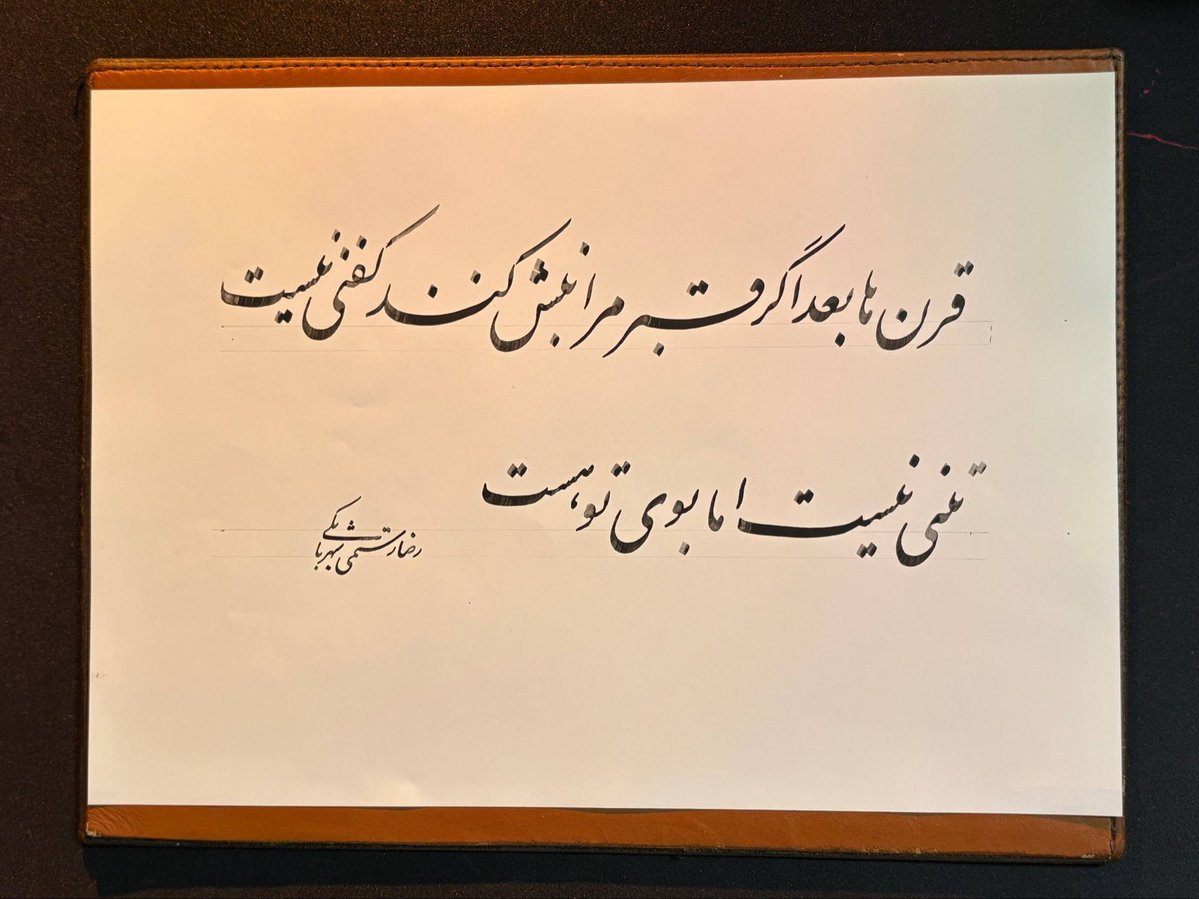 قرن ها بعد اگر قبر مرا نبش کنند کفنی نیست
تنی نیست اما بوی تو هست
رضا رستمی